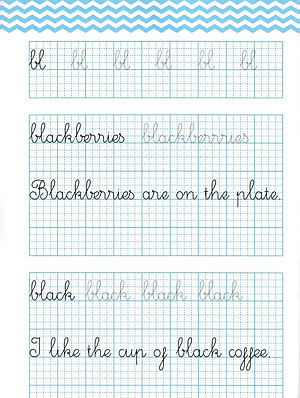 bl bl bl bl bl bl
blackberries blackberrries
Blackberries are on the plate.
black black black black
I like the cup of black coffee.